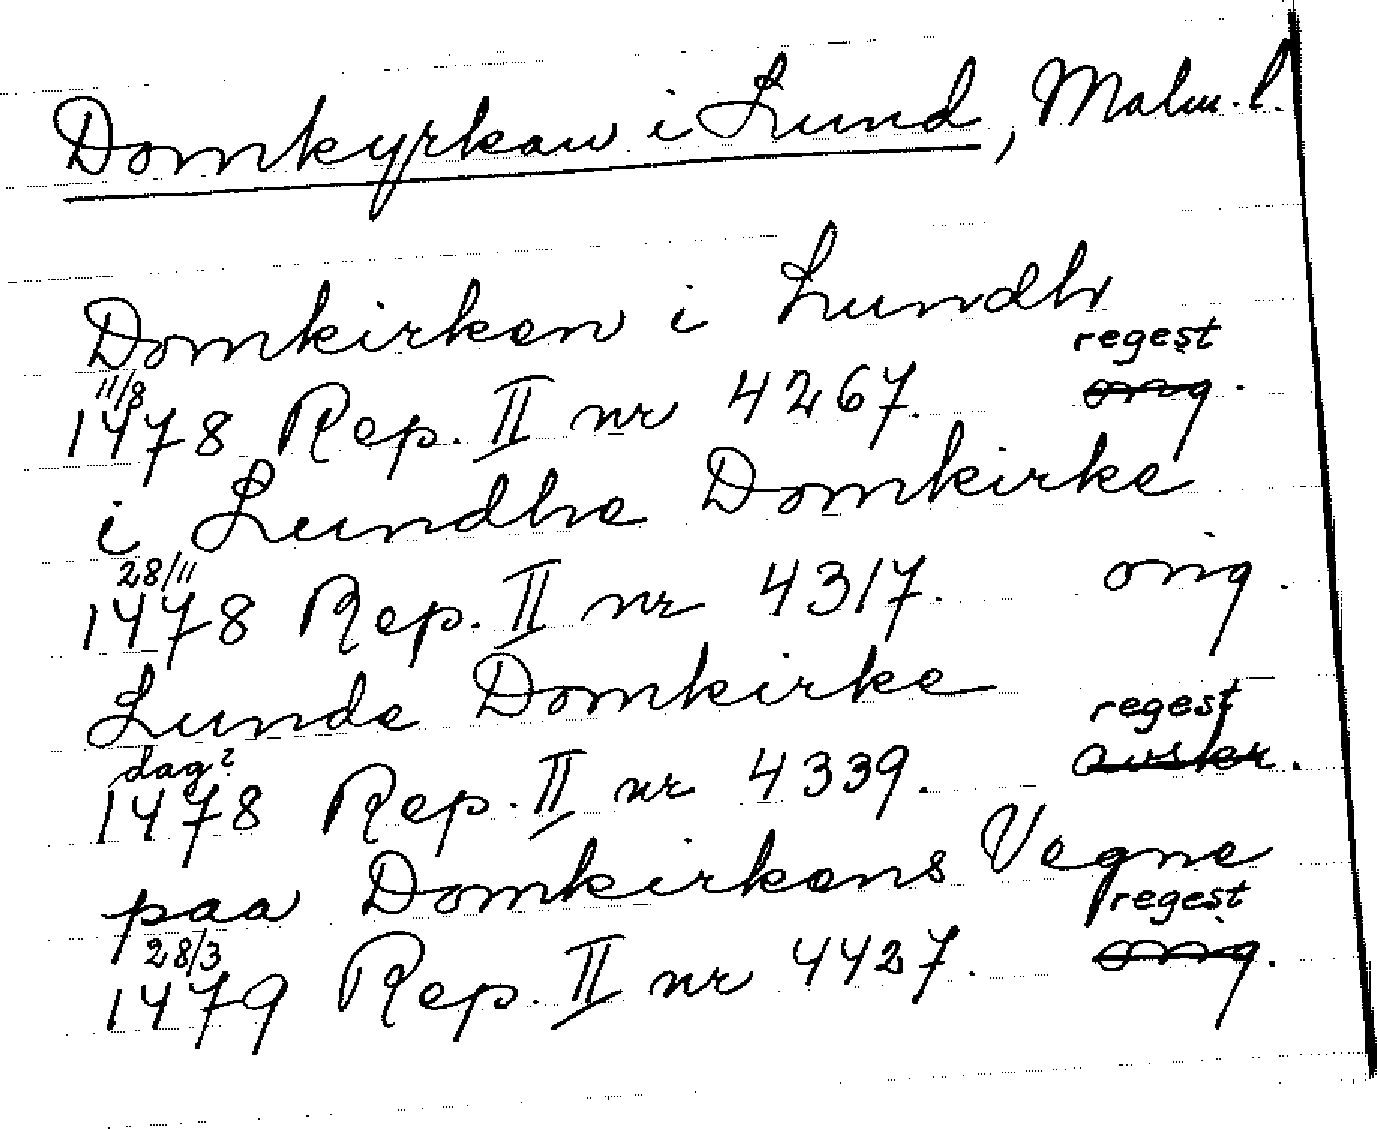 Domkyrkan i Lund, Malm.l.
Domkirken i Lundh
regest
11/8
1478 Rep. II nr 4267. orig.
i Lundhe Domkirke
28/11
1478 Rep. II nr 4317. orig.
Lunde Domkirke
regest
dag?
1478 Rep. II nr 4339. avskr.
paa Domkirkens Vegne
regest
28/3
1479 Rep. II nr 4427. orig.